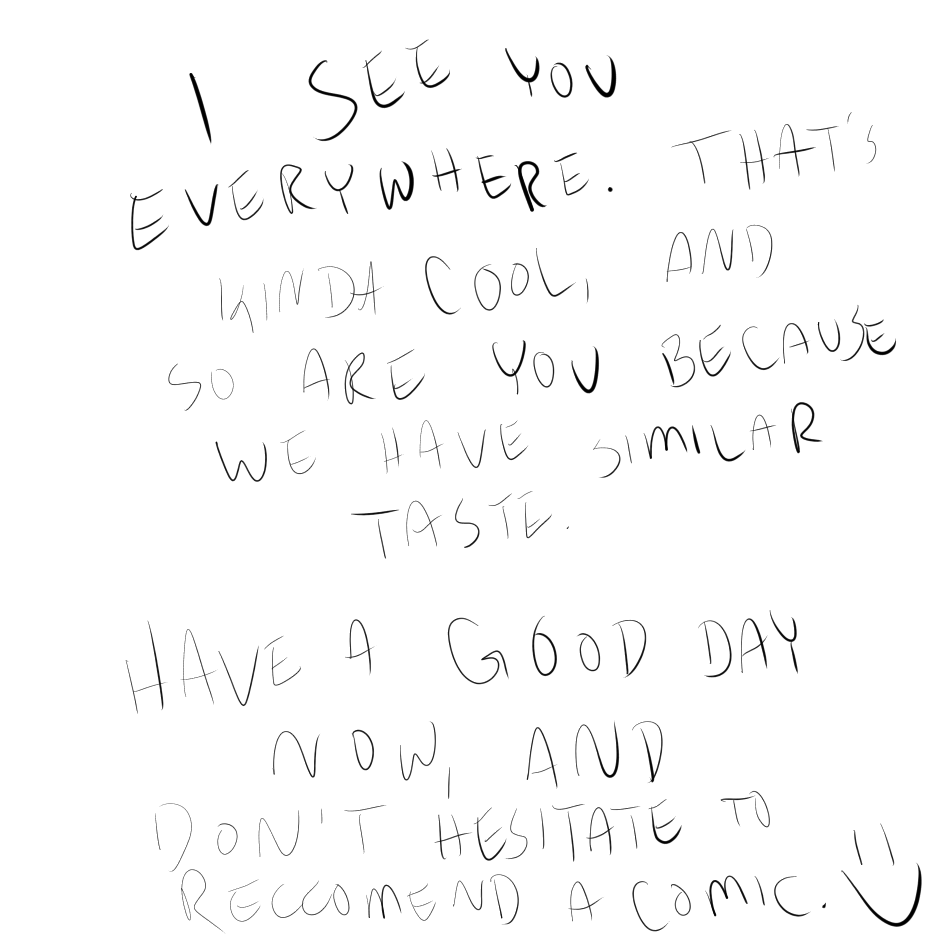 I SEE YOU
EVERYWHERE. THAT'S
KINDA COOL, AND
SO ARE YOU BECAUSE
WE HAVE SIMILAR
TASTE.
HAVE A GOOD DAY
NOW, AND
DON'T HESITATE TO
RECCOMEND A COMIC.